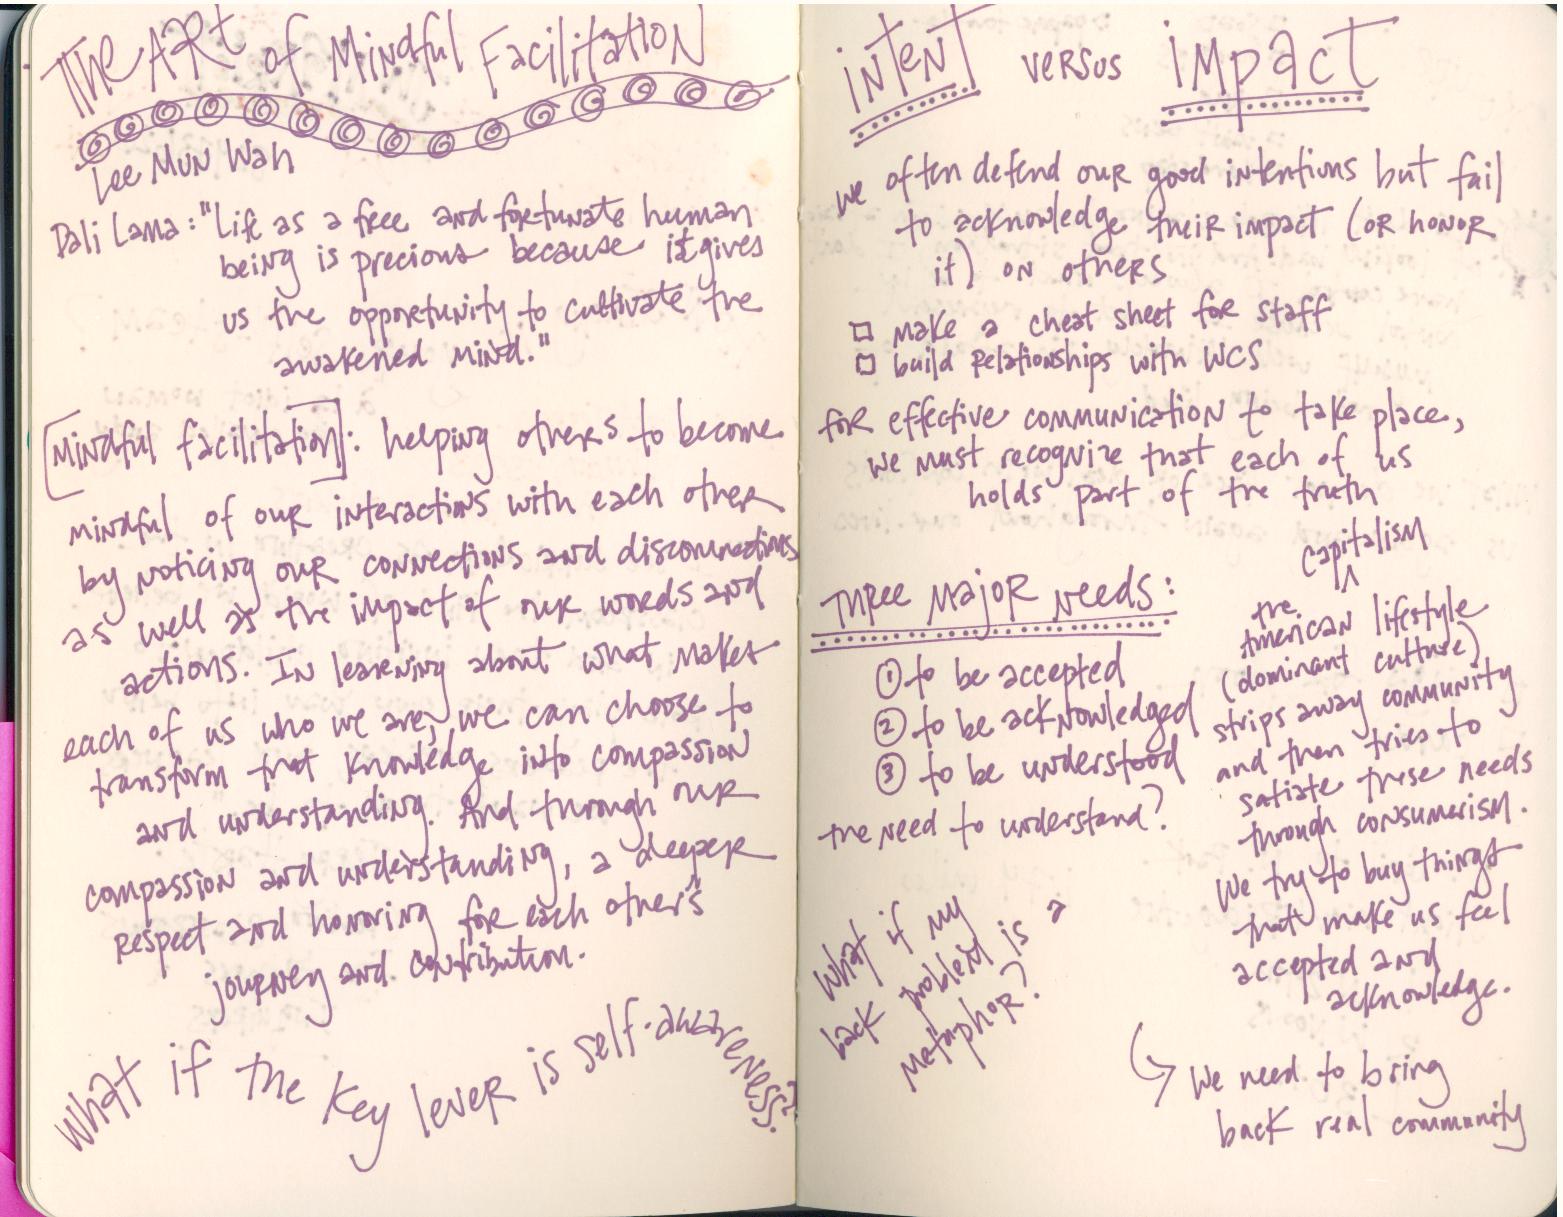 THE ART of Mindful Facilitation
Lee Mun Wah
Dali Lama: "Life as a free and fortunate human
being is precious because it gives
us the opportunity to cultivate the
awakened mind."
[Mindful facilitation]: helping others to become
mindful of our interactions with each other
by noticing our connections and disconnections
as well as the impact of our words and
actions. In learning about what makes
each of us who we are, we can choose to
transform that knowledge into compassion
and understanding. And through our
compassion and understanding, a deeper
respect and honoring for each other's
journey and contribution.
What if the key lever is self-awareness?
intent versus impact
we often defend our good intentions but fail
to acknowledge their impact (or honor
it) on others
□ make a cheat sheet for staff
□ build relationships with WCS
for effective communication to take place,
we must recognize that each of us
holds part of the truth
Three Major Needs:
① to be accepted
② to be acknowledged
③ to be understood
the need to understand?
What if my
back problem is a
metaphor?
capitalism
^
the
American lifestyle
(dominant culture)
strips away community
and then tries to
satiate these needs
through consumerism.
We try to buy things
that make us feel
accepted and
acknowledge.
We need to bring
back real community